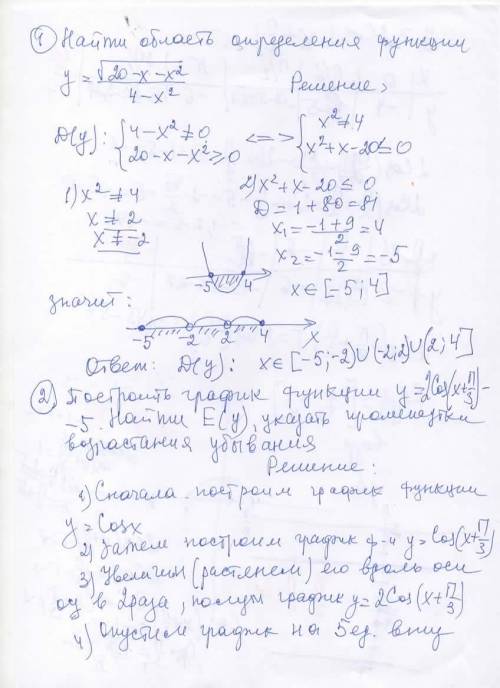 ① Найти область определения функции
y = √(20-x-x²) / (4-x²)
Решение:
D(y): { 4-x² ≠ 0 <=> { x² ≠ 4
{ 20-x-x² ≥ 0 { x²+x-20 ≤ 0
1) x² ≠ 4 2) x²+x-20 ≤ 0
x ≠ 2 D = 1+80 = 81
x ≠ -2 x₁ = (-1+9)/2 = 4
x₂ = (-1-9)/2 = -5
-5 4 x ∈ [-5; 4]
значит:
-5 -2 2 4 x
Ответ: D(y): x ∈ [-5;-2) ∪ (-2;2) ∪ (2; 4]
② Построить график функции y = 2Cos(x+π/3) -
-5. Найти E(y), указать промежутки
возрастания убывания
Решение:
1) Сначала построим график функции
y = Cosx
2) Затем построим график ф-и y = Cos(x+π/3)
3) Увеличим (растянем) его вдоль оси
oy в 2 раза, получим график y = 2Cos(x+π/3)
4) Опустим график на 5 ед. вниз